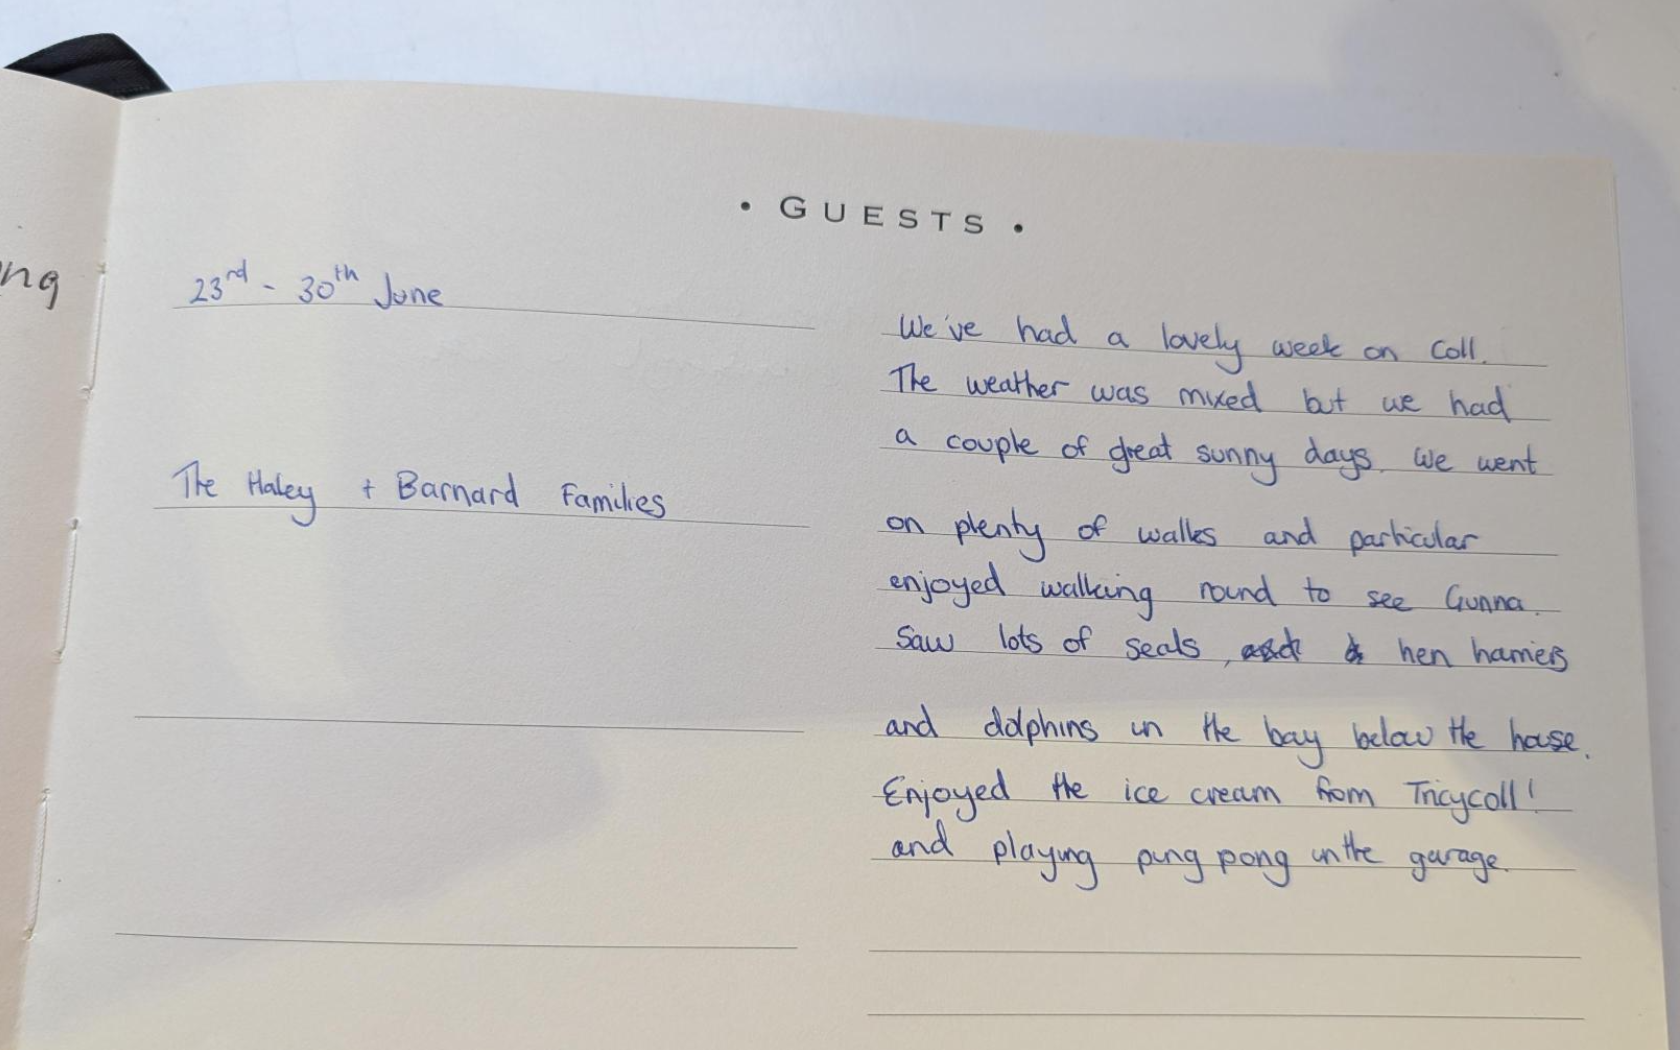 ng
• GUESTS •
23rd - 30th June
The Haley + Barnard Families
We've had a lovely week on Coll.
The weather was mixed but we had
a couple of great sunny days. We went
on plenty of walks and particular
enjoyed walking round to see Gunna.
Saw lots of seals, hen harriers
and dolphins in the bay below the house.
Enjoyed the ice cream from Tricycoll!
and playing ping pong in the garage.